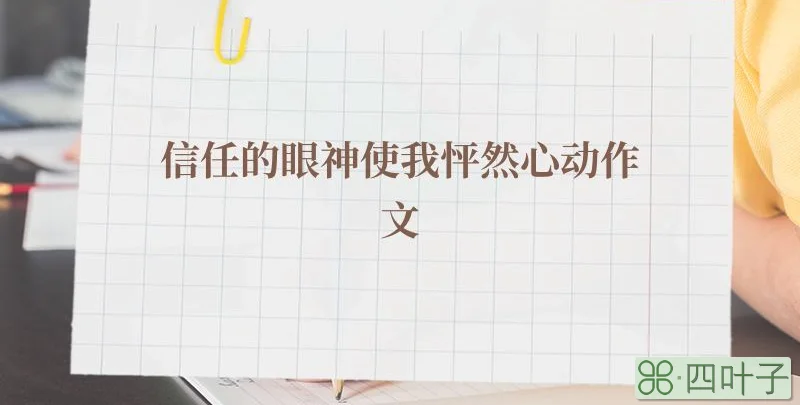 信任的眼神使我怦然心动作
文
四叶子